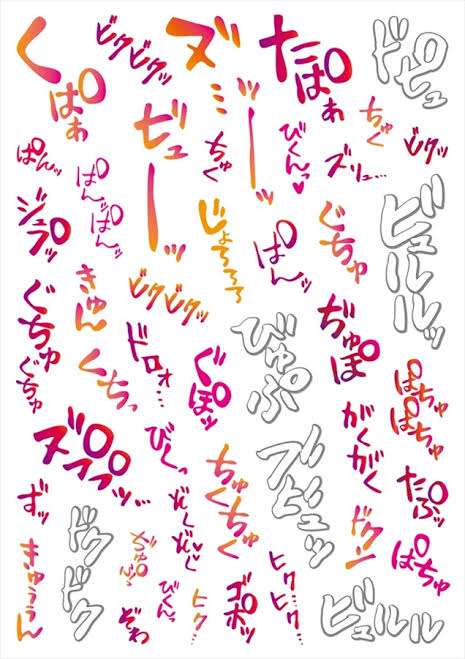 くぱぁ
ビクビクッ
ズ…ッ
たぱぁ
ドピュ
ビューーッ
ちゅく
びくんっ♥
ズリュ…
ちゅく
ビクッ
ぱんッ
ぱんッぱんッ
ジュプッ
じょろろろ
ぱんッ
ぐちゅ
ビュルルッ
きゅん
ビクビクッ
ぐちゅ
ぐちゅ
くちっ
ドロォ…
ぐぽッ
びゅぷ
ぢゅぽ
ぱちゅ
ぱちゅ
ズププッ…
びくっ
がくがく
たぷッ
ずッ
ちゅくちゅく
ブビュッ
ドクン
ぱちゅ
きゅううん
ドクドク
ぞわ
びくんっ
ヒク…
ゴポッ
ヒク…ヒク…
ビュルルル